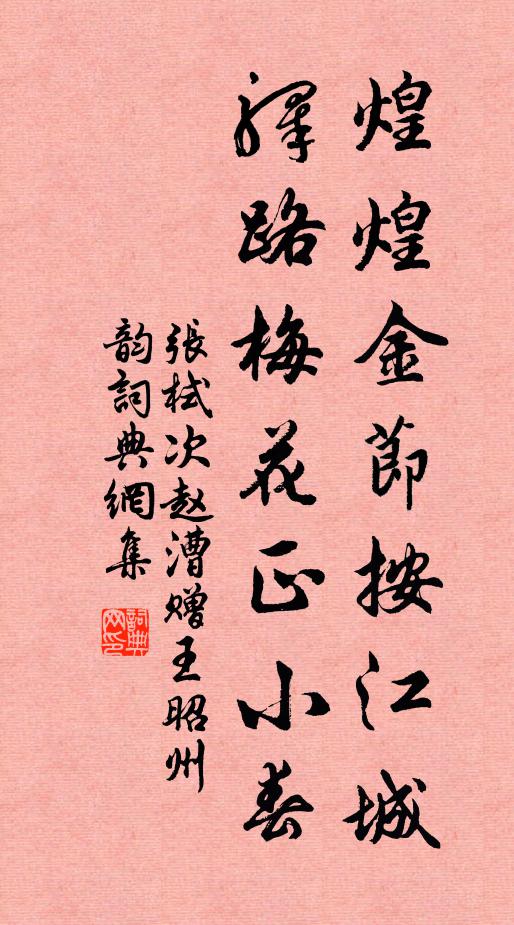 煌煌金節按江城
驛路梅花正小春
張栻次赵漕赠王昭州
韵詞典網集
詞典网印